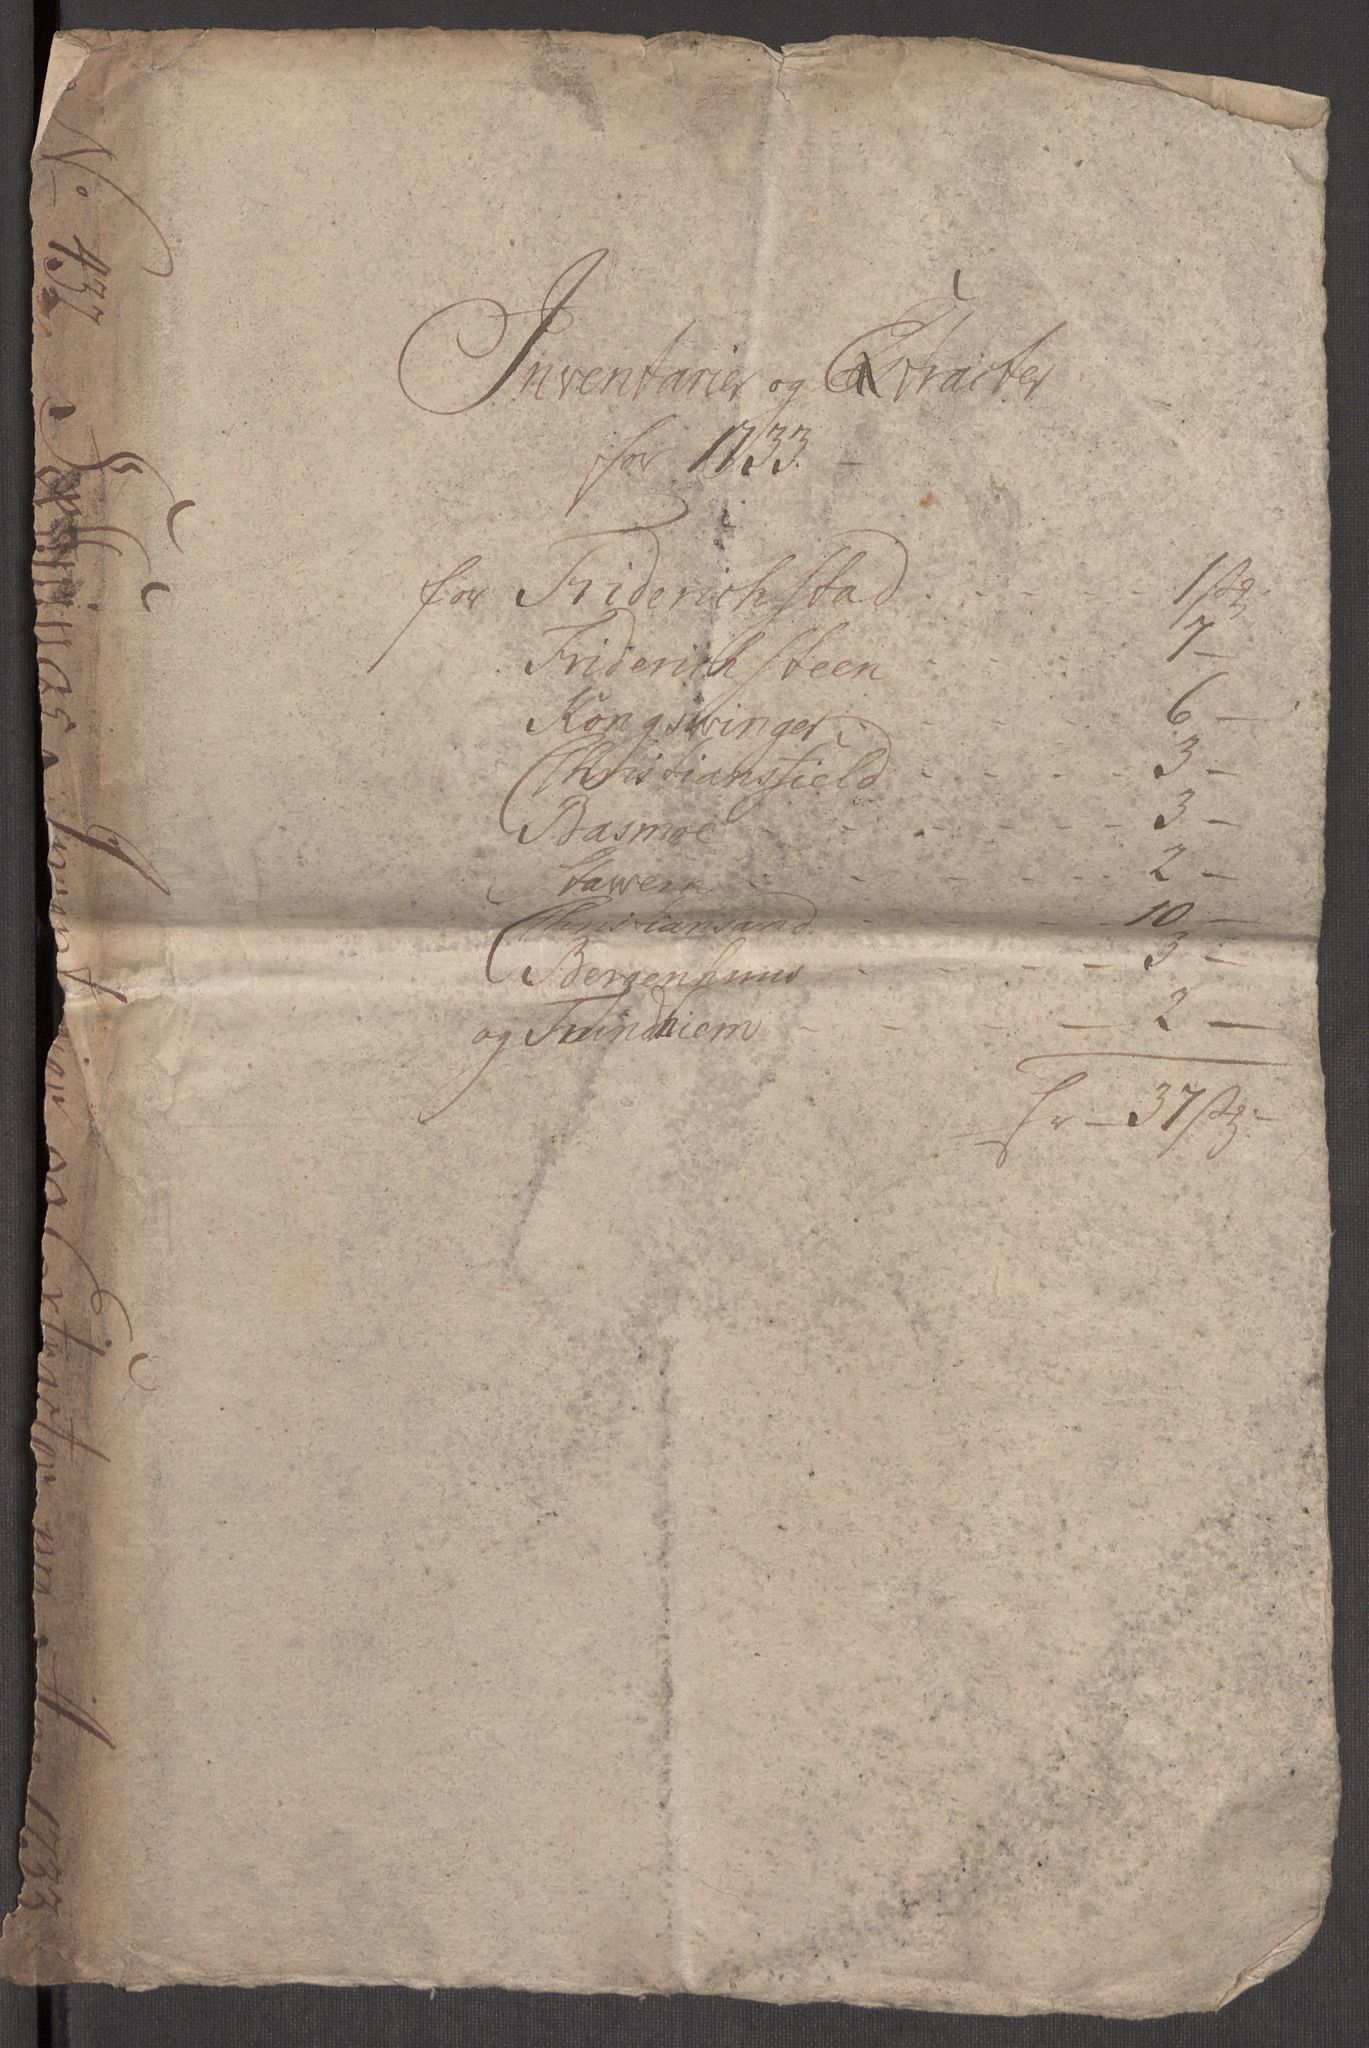 Inventarier og Extracter
for 1733.
for Friderichstad 1 stz
Friderichsteen 7
Kongswinger 6
Christiansfield 3
Basmoe 3
Stawern 2
Christiansand 10
Bergenhuus 3
og Trundhiem 2
Er 37 stz
No 437 Invent og Extracter 1733